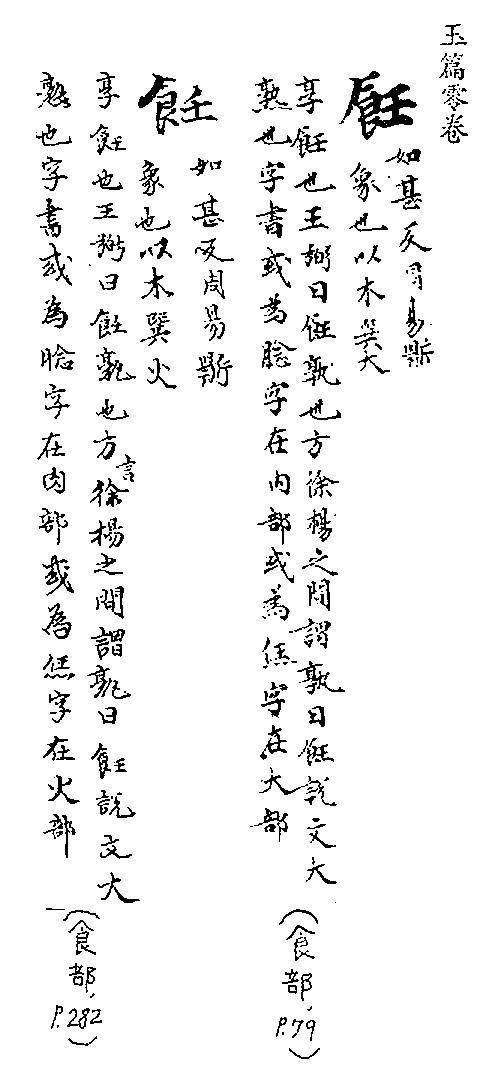 玉篇零卷
飪
如甚反周易鼎
象也以木巽大
享飪也王弼曰飪孰也方徐楊之間謂孰曰飪說文大
熟也字書或為腍字在肉部或為恁字在大部
(食部, P.79)
飪
如甚反周易鼎
象也以木巽火
享飪也王弼曰飪孰也方言徐楊之間謂孰曰飪說文大
熟也字書或為腍字在肉部或為恁字在火部
(食部, P.282)